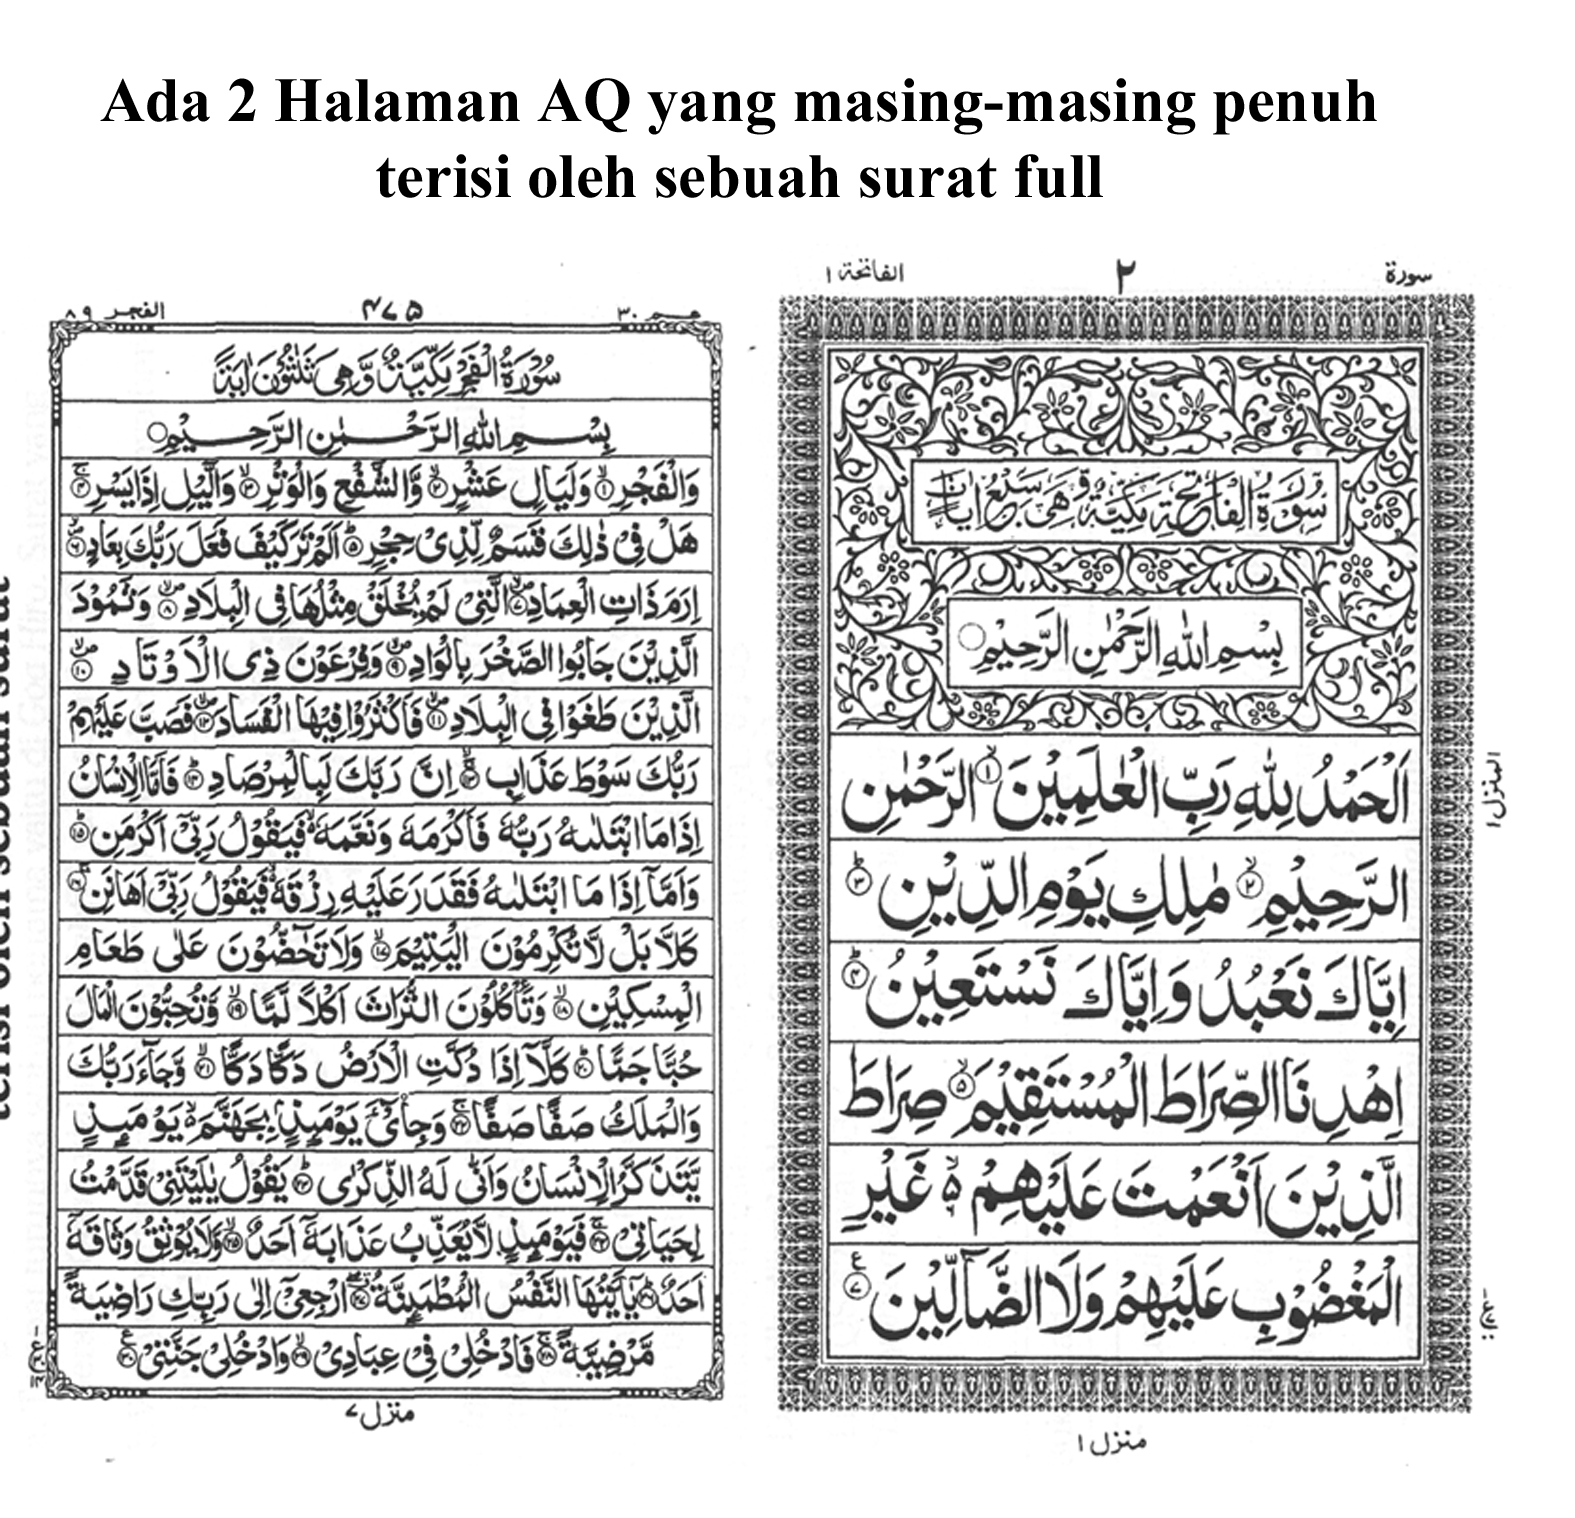 Ada 2 Halaman AQ yang masing-masing penuh
terisi oleh sebuah surat full
سورة ٢ الفاتحة ١
سُوْرَةُ الْفَاتِحَةِ مَكِّيَّةٌ وَّهِىَ سَبْعُ اٰيَاتٍ
بِسْمِ اللّٰهِ الرَّحْمٰنِ الرَّحِيْمِ
اَلْحَمْدُ لِلّٰهِ رَبِّ الْعٰلَمِيْنَ ١ الرَّحْمٰنِ
الرَّحِيْمِ ٢ مٰلِكِ يَوْمِ الدِّيْنِ ٣
اِيَّاكَ نَعْبُدُ وَاِيَّاكَ نَسْتَعِيْنُ ٤
اِهْدِنَا الصِّرَاطَ الْمُسْتَقِيْمَ ٥ صِرَاطَ
الَّذِيْنَ اَنْعَمْتَ عَلَيْهِمْ ٦ غَيْرِ
الْمَغْضُوْبِ عَلَيْهِمْ وَلَا الضَّآلِّيْنَ ٧
المنزل ١
منزل ١
عم ٣٠ ۴۷۵ الفجر ٨٩
سُوْرَةُ الْفَجْرِ مَكِّيَّةٌ وَّهِىَ ثَلٰثُوْنَ اٰيَةً
بِسْمِ اللّٰهِ الرَّحْمٰنِ الرَّحِيْمِ
وَالْفَجْرِ ١ وَلَيَالٍ عَشْرٍ ٢ وَّالشَّفْعِ وَالْوَتْرِ ٣ وَالَّيْلِ اِذَا يَسْرِ ٤
هَلْ فِىْ ذٰلِكَ قَسَمٌ لِّذِىْ حِجْرٍ ٥ اَلَمْ تَرَ كَيْفَ فَعَلَ رَبُّكَ بِعَادٍ ٦
اِرَمَ ذَاتِ الْعِمَادِ ٧ الَّتِىْ لَمْ يُخْلَقْ مِثْلُهَا فِى الْبِلَادِ ٨ وَثَمُوْدَ
الَّذِيْنَ جَابُوا الصَّخْرَ بِالْوَادِ ٩ وَفِرْعَوْنَ ذِى الْاَوْتَادِ ١٠
الَّذِيْنَ طَغَوْا فِى الْبِلَادِ ١١ فَاَكْثَرُوْا فِيْهَا الْفَسَادَ ١٢ فَصَبَّ عَلَيْهِمْ
رَبُّكَ سَوْطَ عَذَابٍ ١٣ اِنَّ رَبَّكَ لَبِالْمِرْصَادِ ١٤ فَاَمَّا الْاِنْسَانُ
اِذَا مَا ابْتَلٰىهُ رَبُّهٗ فَاَكْرَمَهٗ وَنَعَّمَهٗ فَيَقُوْلُ رَبِّىْٓ اَكْرَمَنِ ١٥
وَاَمَّآ اِذَا مَا ابْتَلٰىهُ فَقَدَرَ عَلَيْهِ رِزْقَهٗ فَيَقُوْلُ رَبِّىْٓ اَهَانَنِ ١٦
كَلَّا بَلْ لَّا تُكْرِمُوْنَ الْيَتِيْمَ ١٧ وَلَا تَحٰٓضُّوْنَ عَلٰى طَعَامِ
الْمِسْكِيْنِ ١٨ وَتَاْكُلُوْنَ التُّرَاثَ اَكْلًا لَّمًّا ١٩ وَّتُحِبُّوْنَ الْمَالَ
حُبًّا جَمًّا ٢٠ كَلَّآ اِذَا دُكَّتِ الْاَرْضُ دَكًّا دَكًّا ٢١ وَّجَآءَ رَبُّكَ
وَالْمَلَكُ صَفًّا صَفًّا ٢٢ وَجِاىْٓءَ يَوْمَئِذٍۢ بِجَهَنَّمَ يَوْمَئِذٍ
يَّتَذَكَّرُ الْاِنْسَانُ وَاَنّٰى لَهُ الذِّكْرٰى ٢٣ يَقُوْلُ يٰلَيْتَنِىْ قَدَّمْتُ
لِحَيَاتِىْ ٢٤ فَيَوْمَئِذٍ لَّا يُعَذِّبُ عَذَابَهٗٓ اَحَدٌ ٢٥ وَّلَا يُوْثِقُ وَثَاقَهٗٓ
اَحَدٌ ٢٦ يٰٓاَيَّتُهَا النَّفْسُ الْمُطْمَئِنَّةُ ٢٧ ارْجِعِىْٓ اِلٰى رَبِّكِ رَاضِيَةً
مَّرْضِيَّةً ٢٨ فَادْخُلِىْ فِىْ عِبَادِىْ ٢٩ وَادْخُلِىْ جَنَّتِىْ ٣٠
منزل ٧
terisi oleh sebuah surat